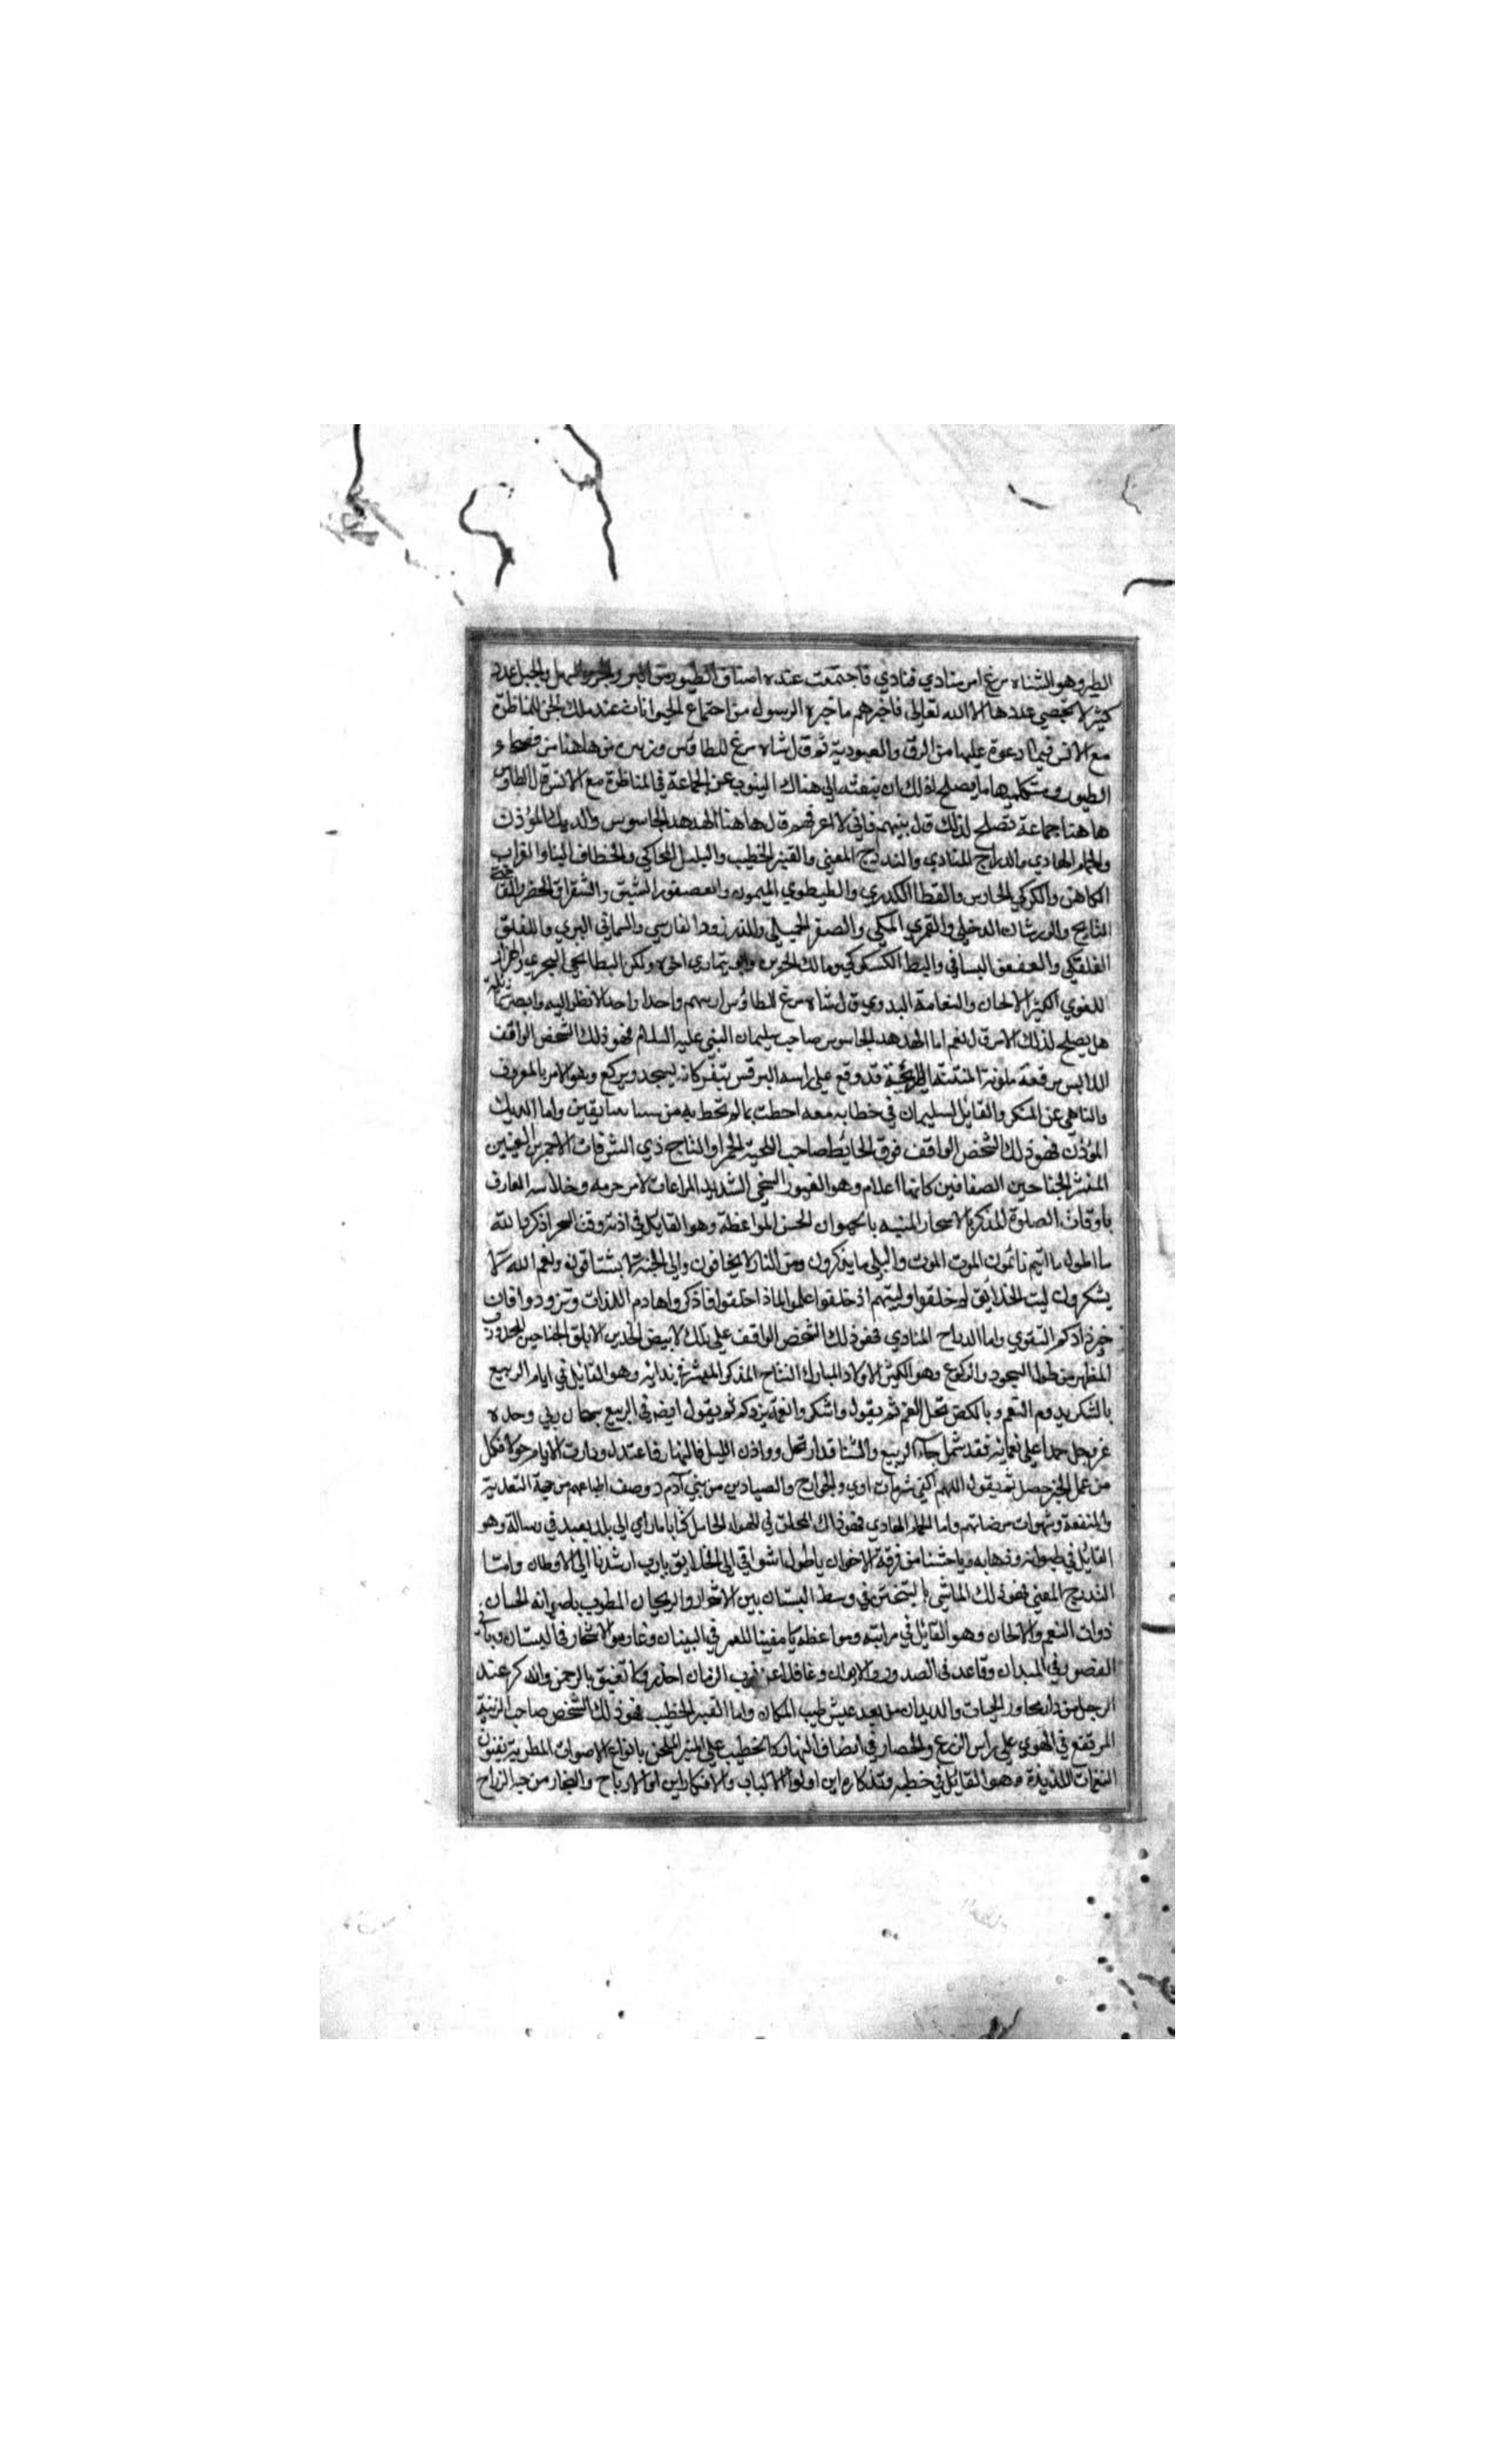 الطير وهو الشاه مرغ امر مناديا فنادي فاجتمعت عنده اصناف الطيور من البر والبحر والسهل والجبل عدد
كثير لا يحصي عددها الا الله تعالى فاخبرهم ما خبره الرسول من اجتماع الحيوانات عند ملك الجن للمناظرة
مع الانس فيما ادعوة عليها من الرق والعبودية ثم قال شاه مرغ للطاوس وزيره من هاهنا من فصحاء
الطيور ومتكلميها ما يصلح لذلك ان نبعثه الى هناك لينوب عن الجماعة في المناظرة مع الانس قال الطاوس
هاهنا جماعة تصلح لذلك قال بينهم فاني لا اعرفهم قال هاهنا الهدهد الجاسوس والديك المؤذن
والحمام الهادي والدراج المنادي والتدرج المغني والقنبر الخطيب والبلبل المحاكي والخطاف البنا والغراب
الكاهن والكركي الحارس والقطا الكدري والطيطوي الميمون والعصفور الشبق والشقراق الخضر والفاختة
النايح والورشان الدخلي والقمري المكي والصقر الجبلي والزرزور الفارسي والسماني البري واللقلق
القلعي والعقعق البستاني والبط الكسكري ومالك الحزين وابو تيماري اخوه ولكن البطايحي البحري والهزار
اللغوي الكثير الالحان والنعامة البدوي قال شاه مرغ للطاوس ارنيهم واحدا واحدا لانظر اليه وابصر شمايله
هل يصلح لذلك الامر قال نعم اما الهدهد الجاسوس صاحب سليمان النبي عليه السلام فهو ذلك الشخص الواقف
اللابس مرقعة ملونة المنتنة الرايحة قد وقع على راسه البرقس ينقر كانه يسجد ويركع وهو الامر بالمعروف
والناهي عن المنكر والقايل لسليمان في خطابه معه احطت بما لم تحط به من سبا بنبا يقين واما الديك
المؤذن فهو ذلك الشخص الواقف فوق الحايط صاحب اللحية الحمرا والتاج ذي الشرفات الاحمر العينين
المنشر الجناحين الصفافين كانها اعلام وهو الغيور السخي الشديد المراعات لامر حرمه وخلاسه العارف
باوقات الصلوة المذكر بالاسحار المنبه بالجيران الحسن المواعظة وهو القايل في اذنه وقت السحر اذكروا الله
ما اطول ما انتم نائمون الموت الموت والبلى ما يذكرون ومن النار لا يخافون والى الجنة لا يشتاقون ونعم الله لا
يشكرون ليت الخلايق لم يخلقوا وليتهم اذ خلقوا علموا لماذا خلقوا فاذكروا هادم اللذات وتزودوا فان
خير زادكم التقوي واما الدراج المنادي فهو ذلك الشخص الواقف على تلك الابيض الخدين الابلق الجناحين المحدودب
الظهر من طول السجود والركوع وهو الكثير الاولاد المبارك النتاج المذكر المبشر في ندائه وهو القايل في ايام الربيع
بالشكر يدوم النعم وبالكفر تحل النقم ثم يقول واشكروا نعمة يزدكم ثم يقول ايضا في الربيع سبحان ربي وحده
عز وجل حمدا على نعمائه فقد شمل جاء الربيع والشتا قد ارتحل ووازن الليل فالنهار فاعتدل ودارت الايام حولا فكل
من عمل الخير حصل ثم يقول اللهم اكفني شر بنات اوي والجوارح والصيادين من بني آدم ووصف اطباعهم من جهة التغذية
والمنفعة وشهوات مرضاتهم واما الحمام الهادي فهو ذاك المحلق في الهواء الحامل كتابا مار الى الى بلد بعيد في رسالة وهو
القايل في طيرانه وذهابه ويا وحشتنا من فرقة الاخوان يا طول اشواقي الى الخلايق يا رب ارشدنا الى الاوطان واما
التدرج المغني فهو ذلك الماشي بالتبختر في وسط البستان بين الاشجار والريحان المطرب باصواته الحسان
ذوات النغم والالحان وهو القايل في مراثيه ومواعظه يا مفنيا للعمر في البنيان وغارسو الاشجار في البستان وباني
القصور في الميدان وقاعد في الصدور والايوان وغافلا عن نوب الزمان احذر ولا تغتر بالرحمن واذكر عند
الرحيل من دار مجاور الحيات والديدان من بعد عيش طيب المكان واما القنبر الخطيب فهو ذلك الشخص صاحب الزنبة
المرتفع في الهوي على راس الزرع والحصار في انصاف النهار كالخطيب على المنبر الملحن بانواع الاصوات المطربة بفنون
النغمات اللذيذة وهو القايل في خطبه وتذكاره اين اولوا الالباب والافكار اين اولو الارباح والتجار من حب الزراع